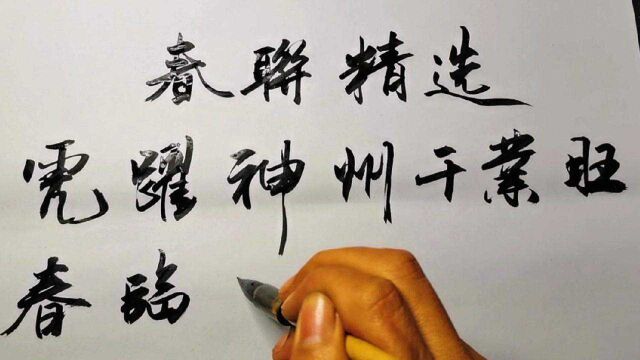 春聯精选
虎躍神州千業旺
春臨